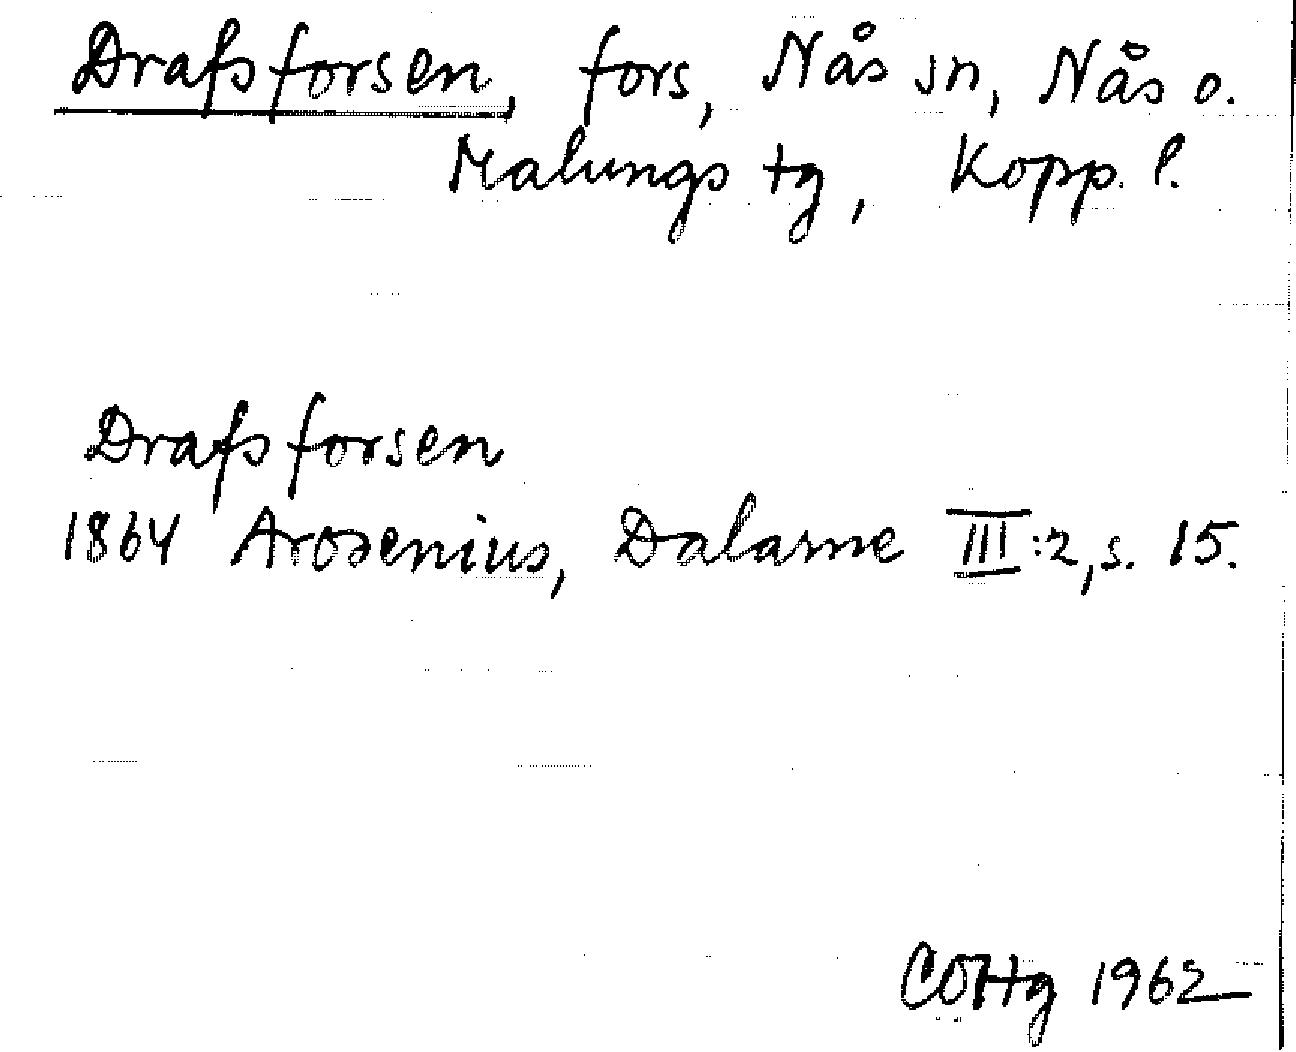 Drafsforsen, fors, Nås sn, Nås o.
Malungs tg, Kopp. l.
Drafsforsen
1864 Arosenius, Dalarne III:2, s. 15.
COHg 1962